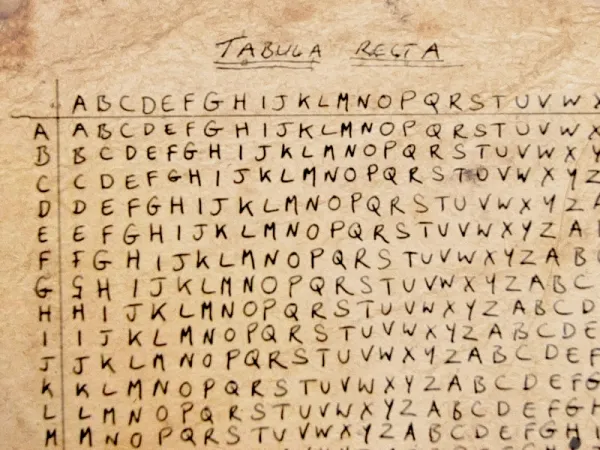 TABULA RECTA
A B C D E F G H I J K L M N O P Q R S T U V W X
A A B C D E F G H I J K L M N O P Q R S T U V W X
B B C D E F G H I J K L M N O P Q R S T U V W X Y
C C D E F G H I J K L M N O P Q R S T U V W X Y Z
D D E F G H I J K L M N O P Q R S T U V W X Y Z A
E E F G H I J K L M N O P Q R S T U V W X Y Z A B
F F G H I J K L M N O P Q R S T U V W X Y Z A B C
G G H I J K L M N O P Q R S T U V W X Y Z A B C
H H I J K L M N O P Q R S T U V W X Y Z A B C D
I I J K L M N O P Q R S T U V W X Y Z A B C D E
J J K L M N O P Q R S T U V W X Y Z A B C D E F
K K L M N O P Q R S T U V W X Y Z A B C D E F G
L L M N O P Q R S T U V W X Y Z A B C D E F G H
M M N O P Q R S T U V W X Y Z A B C D E F G H